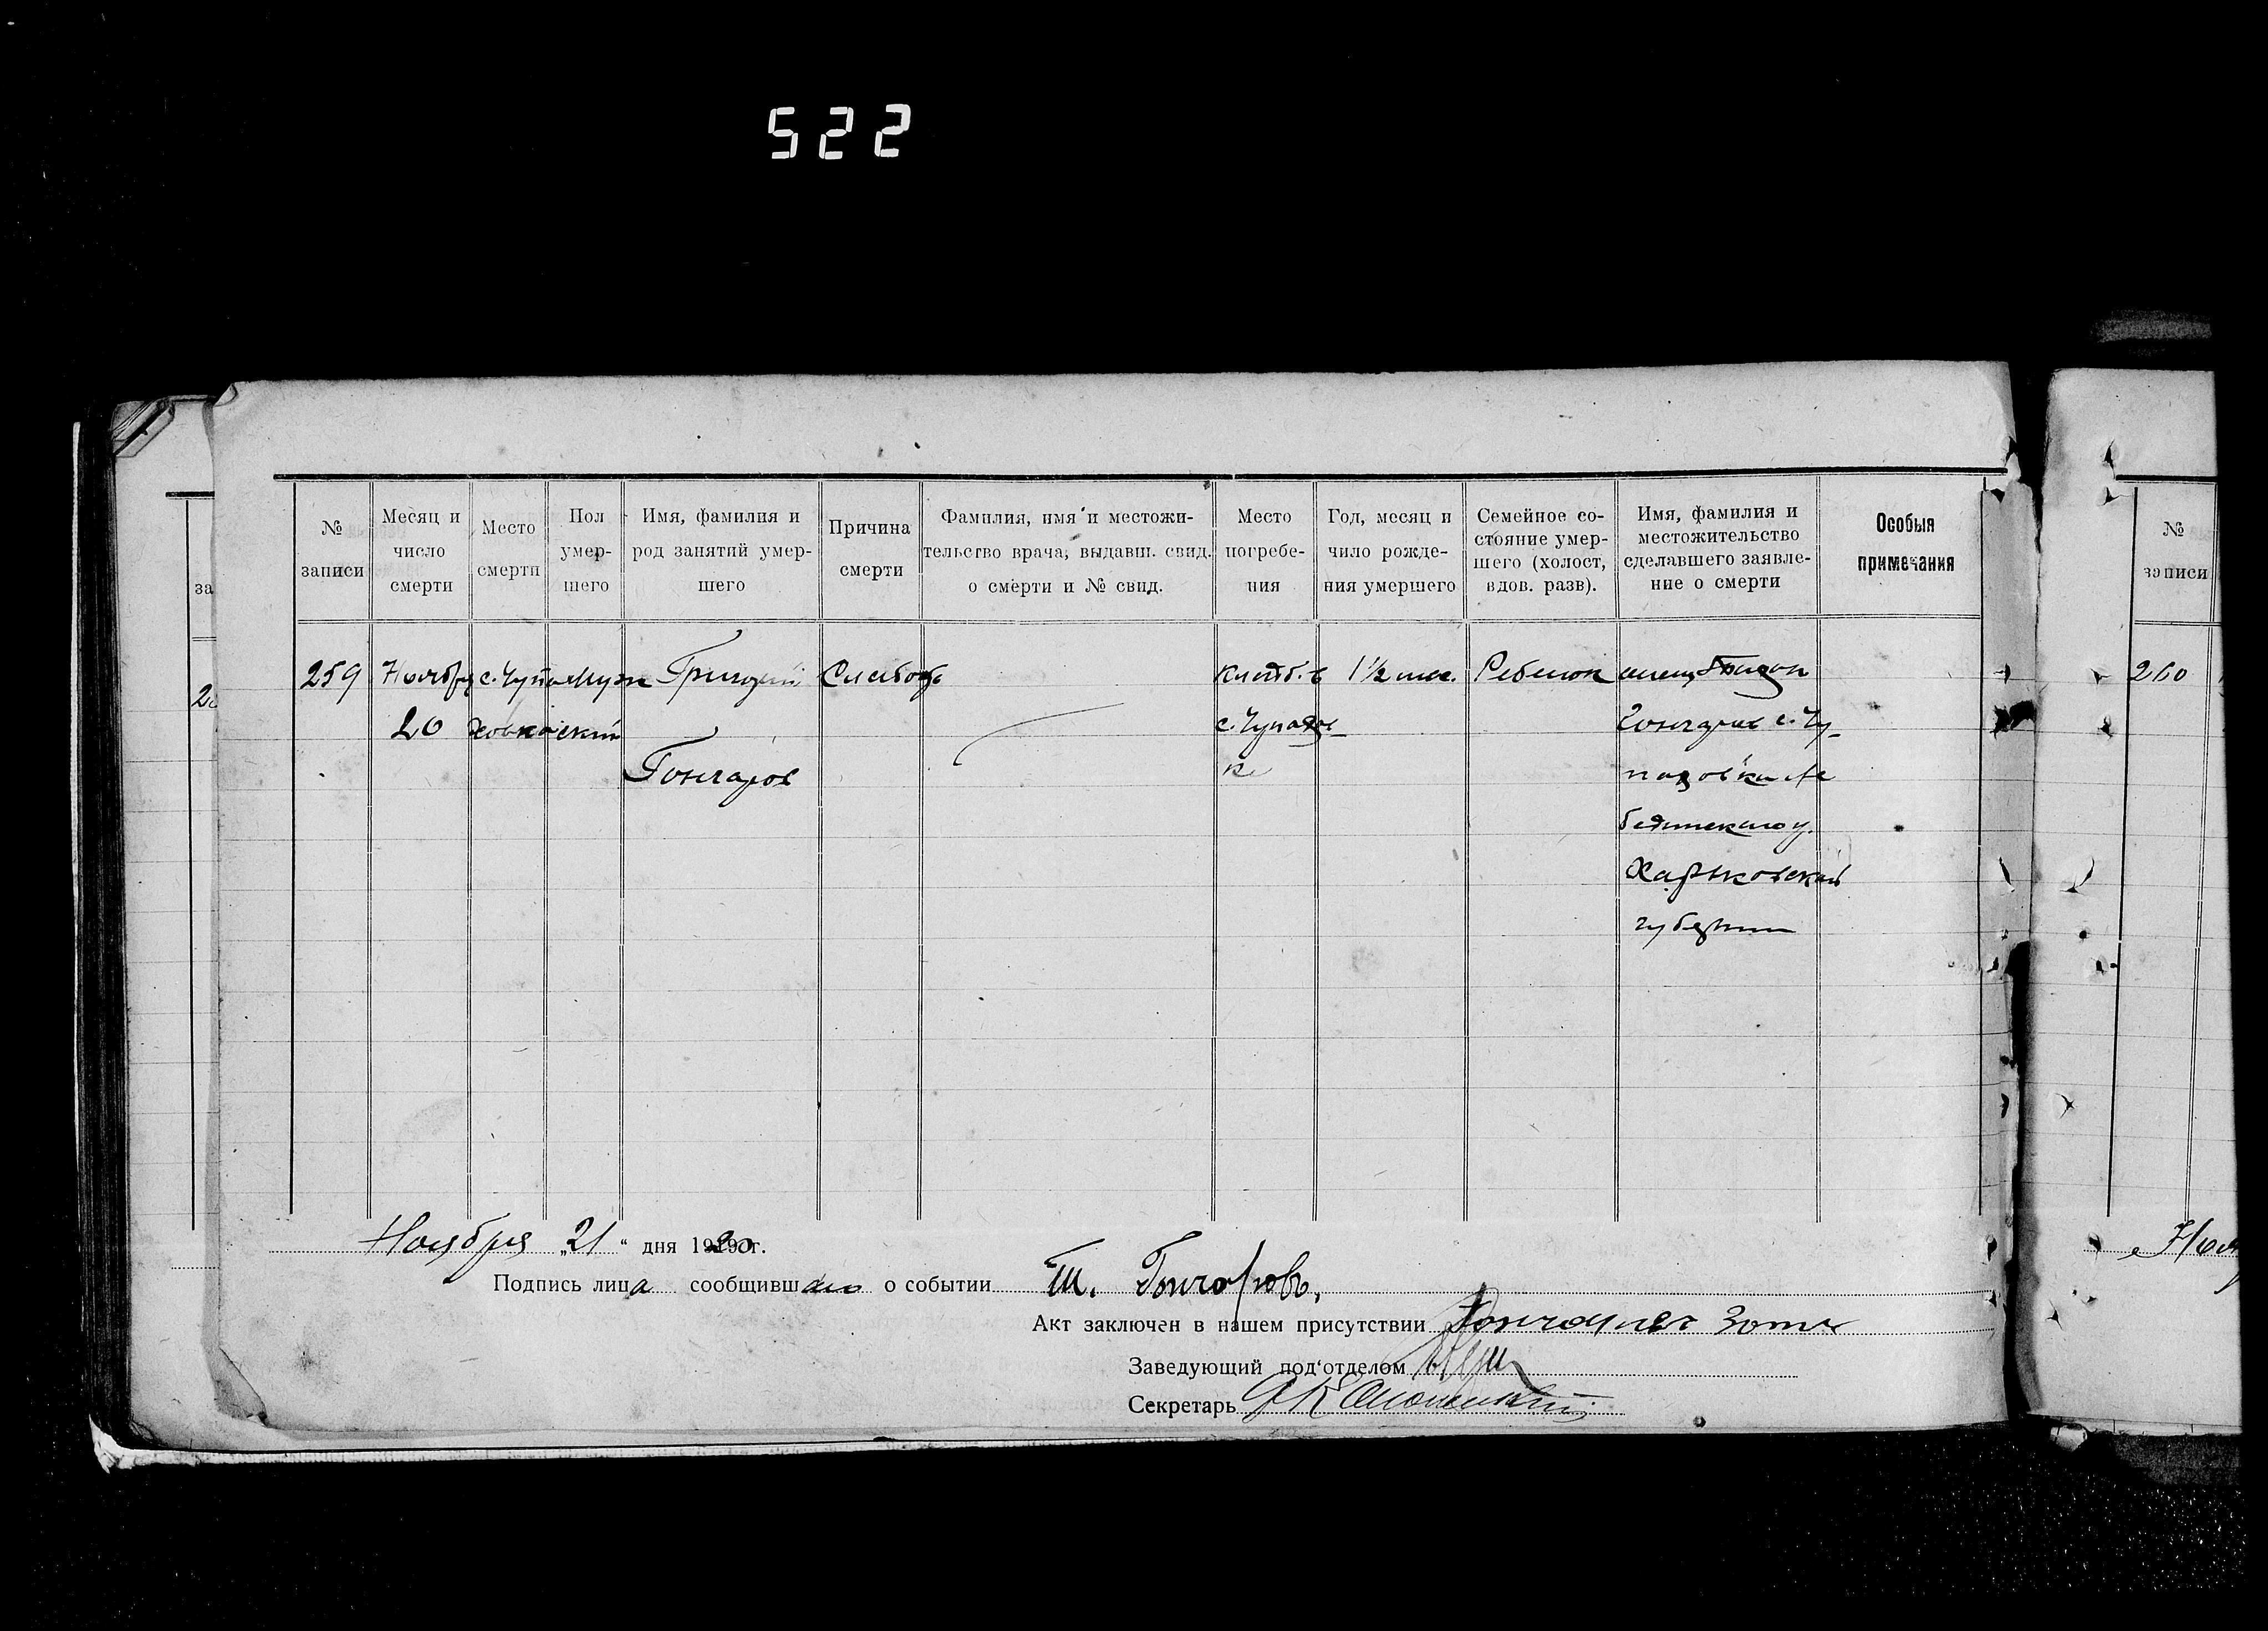 522
№ записи
Месяц и число смерти
Место смерти
Пол умер- шего
Имя, фамилия и род занятий умер- шего
Причина смерти
Фамилия, имя и местожи- тельство врача, выдавш. свид. о смерти и № свид.
Место погребе- ния
Год, месяц и чило рожде- ния умершего
Семейное со- стояние умер- шего (холост, вдов. разв).
Имя, фамилия и местожительство сделавшего заявле- ние о смерти
Особыя примечания
№ записи
за
259
Ноября
20
с. Чупа
ховка
Муж
ский
Григорий
Гончаров
Слабость
Кладб. в
с. Чупахов-
ке
1 1/2 мес.
Ребенок
отец
Гончаров с. Чу-
паховки Ле
бединского у.
Харьковской
губернии
260
Ноября „21“ дня 1920 г.
Подпись лица сообщившаго о событии Т. Гончаровъ,
Акт заключен в нашем присутствии
Заведующий под'отделом
Секретарь